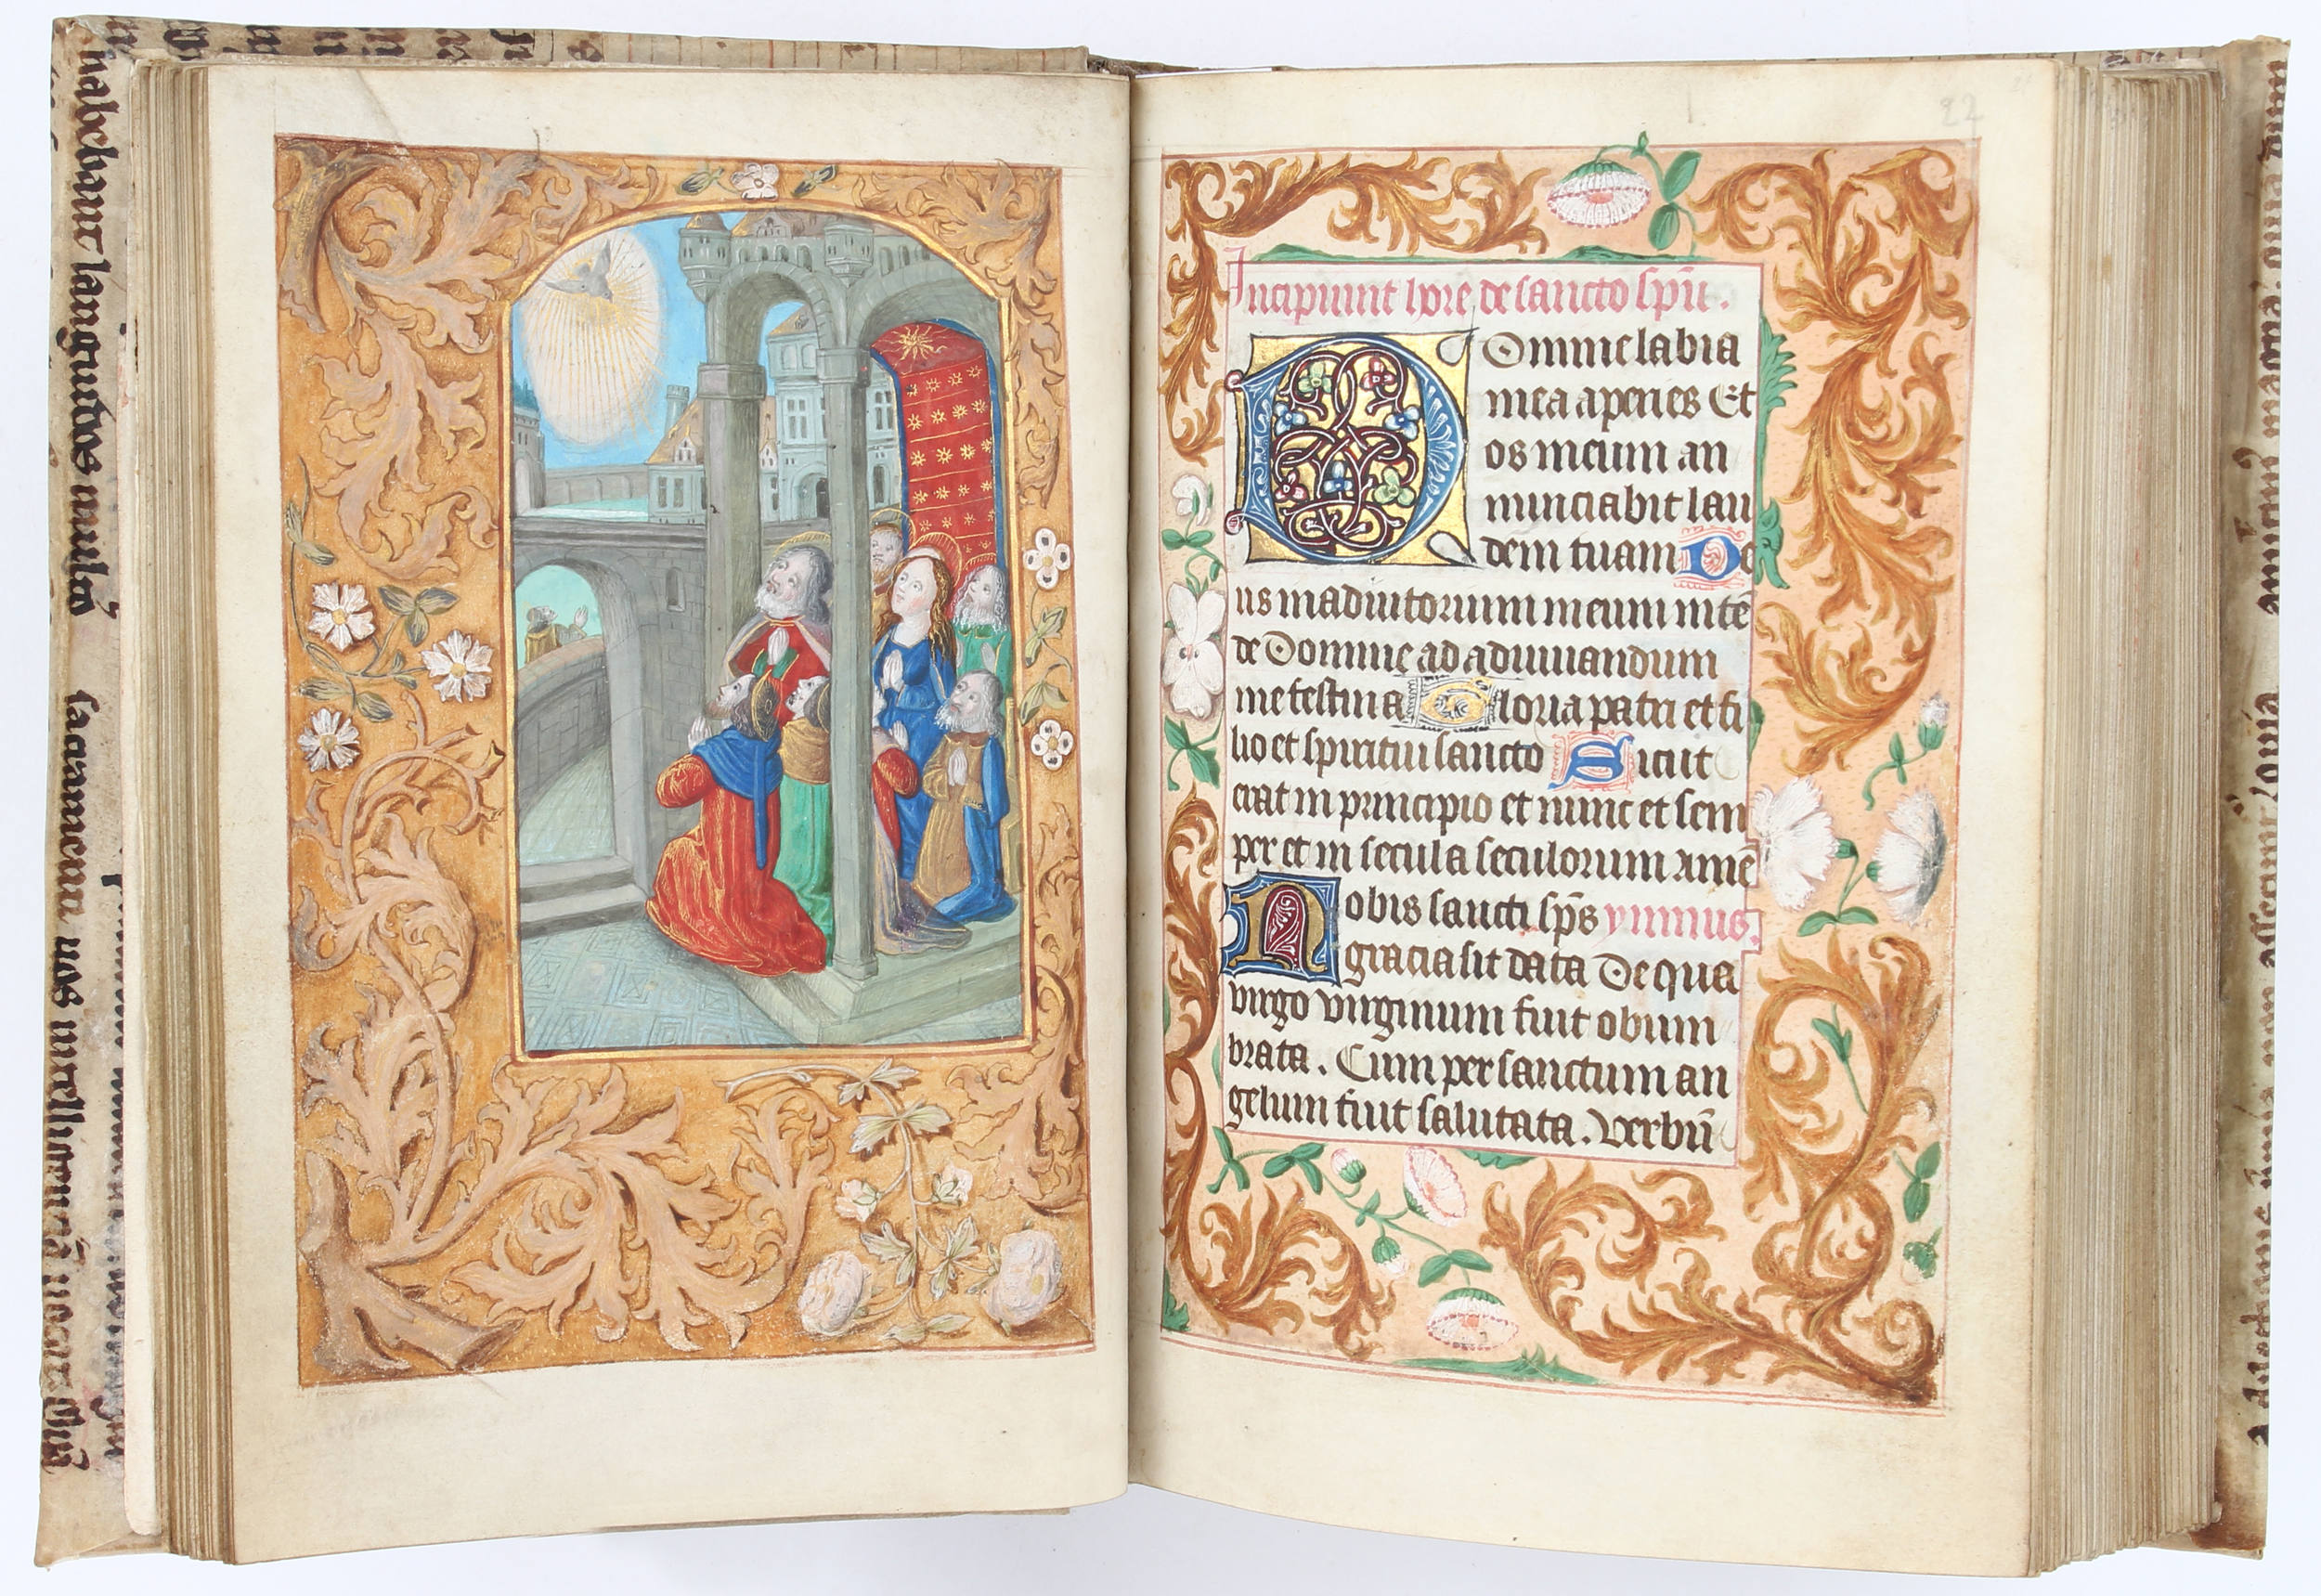 habebant languidos multis
sacramenta uos
22
Incipiunt hore de sancto spu.
Domine labia
mea aperies Et
os meum an
nunciabit lau
dem tuam De
us in adiutorium meum inte
de Domine ad adiuuandum
me festina Gloria patri et fi
lio et spiritui sancto Sicut
erat in principio et nunc et sem
per et in secula seculorum amē
Nobis sancti sps ymnus.
gracia sit data De qua
virgo virginum fuit obum
brata. Cum per sanctum an
gelum fuit salutata. Verbū